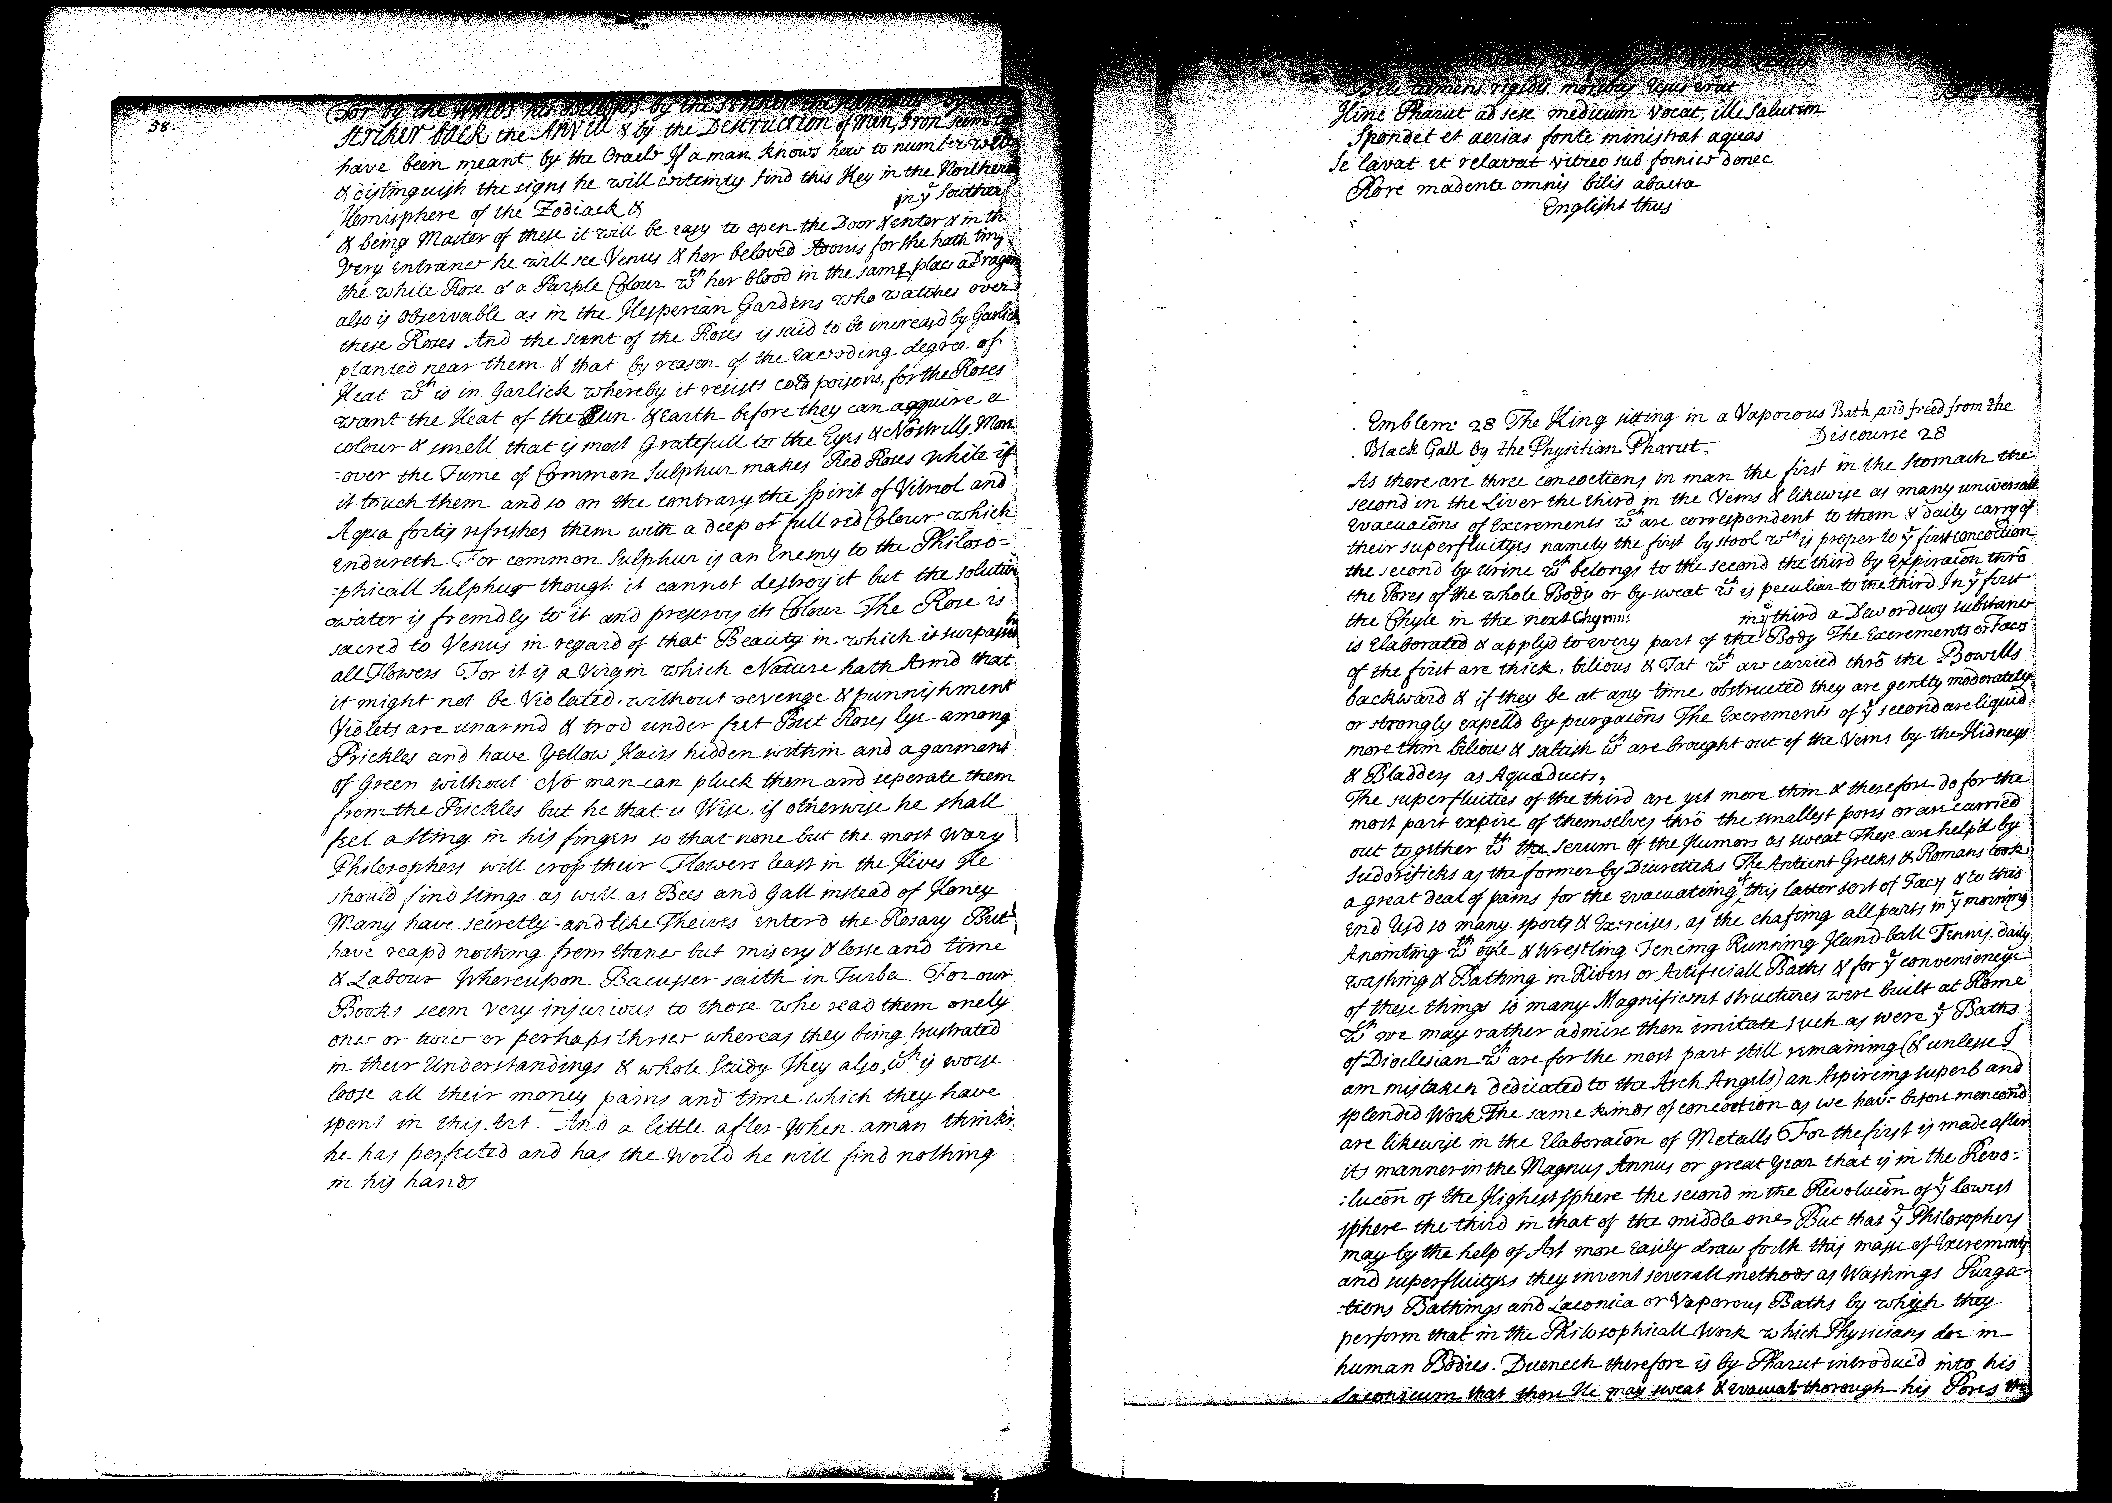 58.
For by the winds the bellows by the striker the Hammer by
striker back the Anvill & by the Destruction of man, Iron seem to
have been meant by the Oracle If a man knows how to number well
& distinguish the signs he will certeinly find this Key in the Northern
Hemisphere of the Zodiack & in yͤ Southern
& being Master of these it will be easy to open the Door & enter & in the
very entrance he will see Venus & her beloved Adonis for she hath ting
the white Rose of a Purple Colour wͭʰ her blood in the same place a Dragon
also is observable as in the Hesperian Gardens who watches over
these Roses And the scent of the Roses is said to be increasd by Garlick
planted near them & that by reason of the exceeding degree of
Heat wᶜʰ is in Garlick whereby it resists cold poisons, for the Roses
want the Heat of the Sun & earth before they can acquire a
colour & smell that is most Gratefull to the Eyes & Nostrills. More
-over the Fume of Common Sulphur makes Red Roses white if
it touch them and so on the contrary the spirit of Vitriol and
Aqua fortis refreshes them with a deep & full red Colour which
endureth For common Sulphur is an Enemy to the Philoso=
-phicall Sulphur though it cannot destroy it but the solutive
water is freindly to it and preserves its Colour The Rose is
sacred to Venus in regard of that Beauty in which it surpasseth
all Flowers For it is a Virgin which Nature hath Armd that
it might not be Violated without revenge & punnishment
Violets are unarmd & trod under feet But Roses lye among
Prickles and have Yellow Hairs hidden within and a garment
of Green without No man can pluck them and seperate them
from the Prickles but he that is Wise. if otherwise he shall
feel a sting in his fingers so that none but the most wary
Philosophers will crop their Flowers least in the Hives He
should find stings as well as Bees and Gall instead of Honey
Many have secretly and like Theives enterd the Rosary But
have reapd nothing from thence but misery & losse and time
& Labour Whereupon Bacusser saith in Turba. For our
Books seem very injurious to those who read them onely
once or twice or perhaps thrice whereas they being frustrated
in their Understandings & whole Study They also, wᶜʰ is worse
loose all their money pains and time which they have
spent in this Art. And a little after When a man thinks
he has perfected and has the World he will find nothing
in his hands
Bile tumens rigidis moribus usus erat
Hinc Pharut ad sese medicum vocat, ille Salutem
Spondet et aerias fonte ministrat aquas
Se lavat et relavat vitreo sub fornice donec
Rore madente omnis bilis abacta
English thus
Embleme 28 The King sitting in a Vaporous Bath and freed from the
Black Gall by the Physitian Pharut. Discourse 28
As there are three concoctions in man the first in the stomach the
second in the Liver the third in the Veins & likewise as many universall
Evacuacōns of Excrements wᶜʰ are correspondent to them & daily carry of
their superfluityes namely the first by stool wᶜʰ is proper to yͤ first concoction
the second by urine wᶜʰ belongs to the second the third by Expiracōn thrō
the Pores of the whole Body or by sweat wᶜʰ is peculiar to the third In yͤ first
the Chyle in the next Chymus in yͤ third a Dew or dewy substance
is Elaborated & applyd to every part of the Body The Excrements or Faeces
of the first are thick, bilious & Fat wᶜʰ are carried thrō the Bowells
backward & if they be at any time obstructed they are gently moderately
or strongly expelld by purgacōns The Excrements of yͤ second are liquid
more thin bilious & saltish wᶜʰ are brought out of the Veins by the Kidneys
& Bladders as Aquaducts.
The superfluities of the third are yet more thin & therefore do for the
most part expire of themselves thrō the smallest pores or are carried
out together wͭʰ the Serum of the Humors as sweat These are help'd by
sudorificks as the former by Diureticks The Antient Greeks & Romans took
a great deal of pains for the evacuateing of this latter sort of Faeces & to this
end Usd so many sports & Exercises, as the chafeing all parts in yͤ morning
Anointing wͭʰ oyle & Wrestling Fencing Running Hand-ball Tennis, daily
washing & Bathing in Rivers or Artificiall Baths & for yͤ convenieneye
of these things so many Magnificent structures were built at Rome
wᶜʰ we may rather admire then imitate such as were yͤ Baths
of Dioclesian wᶜʰ are for the most part still remaining (& unlesse I
am mistaken dedicated to the Arch Angels) an Aspireing superb and
splendid Work The same kinds of concoction as we have before mencond
are likewise in the Elaboracōn of Metalls For the first is made after
its manner in the Magnus Annus or great year that is in the Revo=
:lucōn of the Highest sphere the second in the Revolucōn of yͤ lowest
sphere the third in that of the middle one, But that yͤ Philosophers
may by the help of Art more easily draw forth this masse of Excrements
and superfluityes they invent severall methods as Washings Purga-
-tions Bathings and Laconica or Vaporous Baths by which they
perform that in the Philosophicall Work which Physicians doe in
human Bodies. Duenech therefore is by Pharut introduc'd into his
Laconicum that there He may sweat & evacuat thorough his Pores the